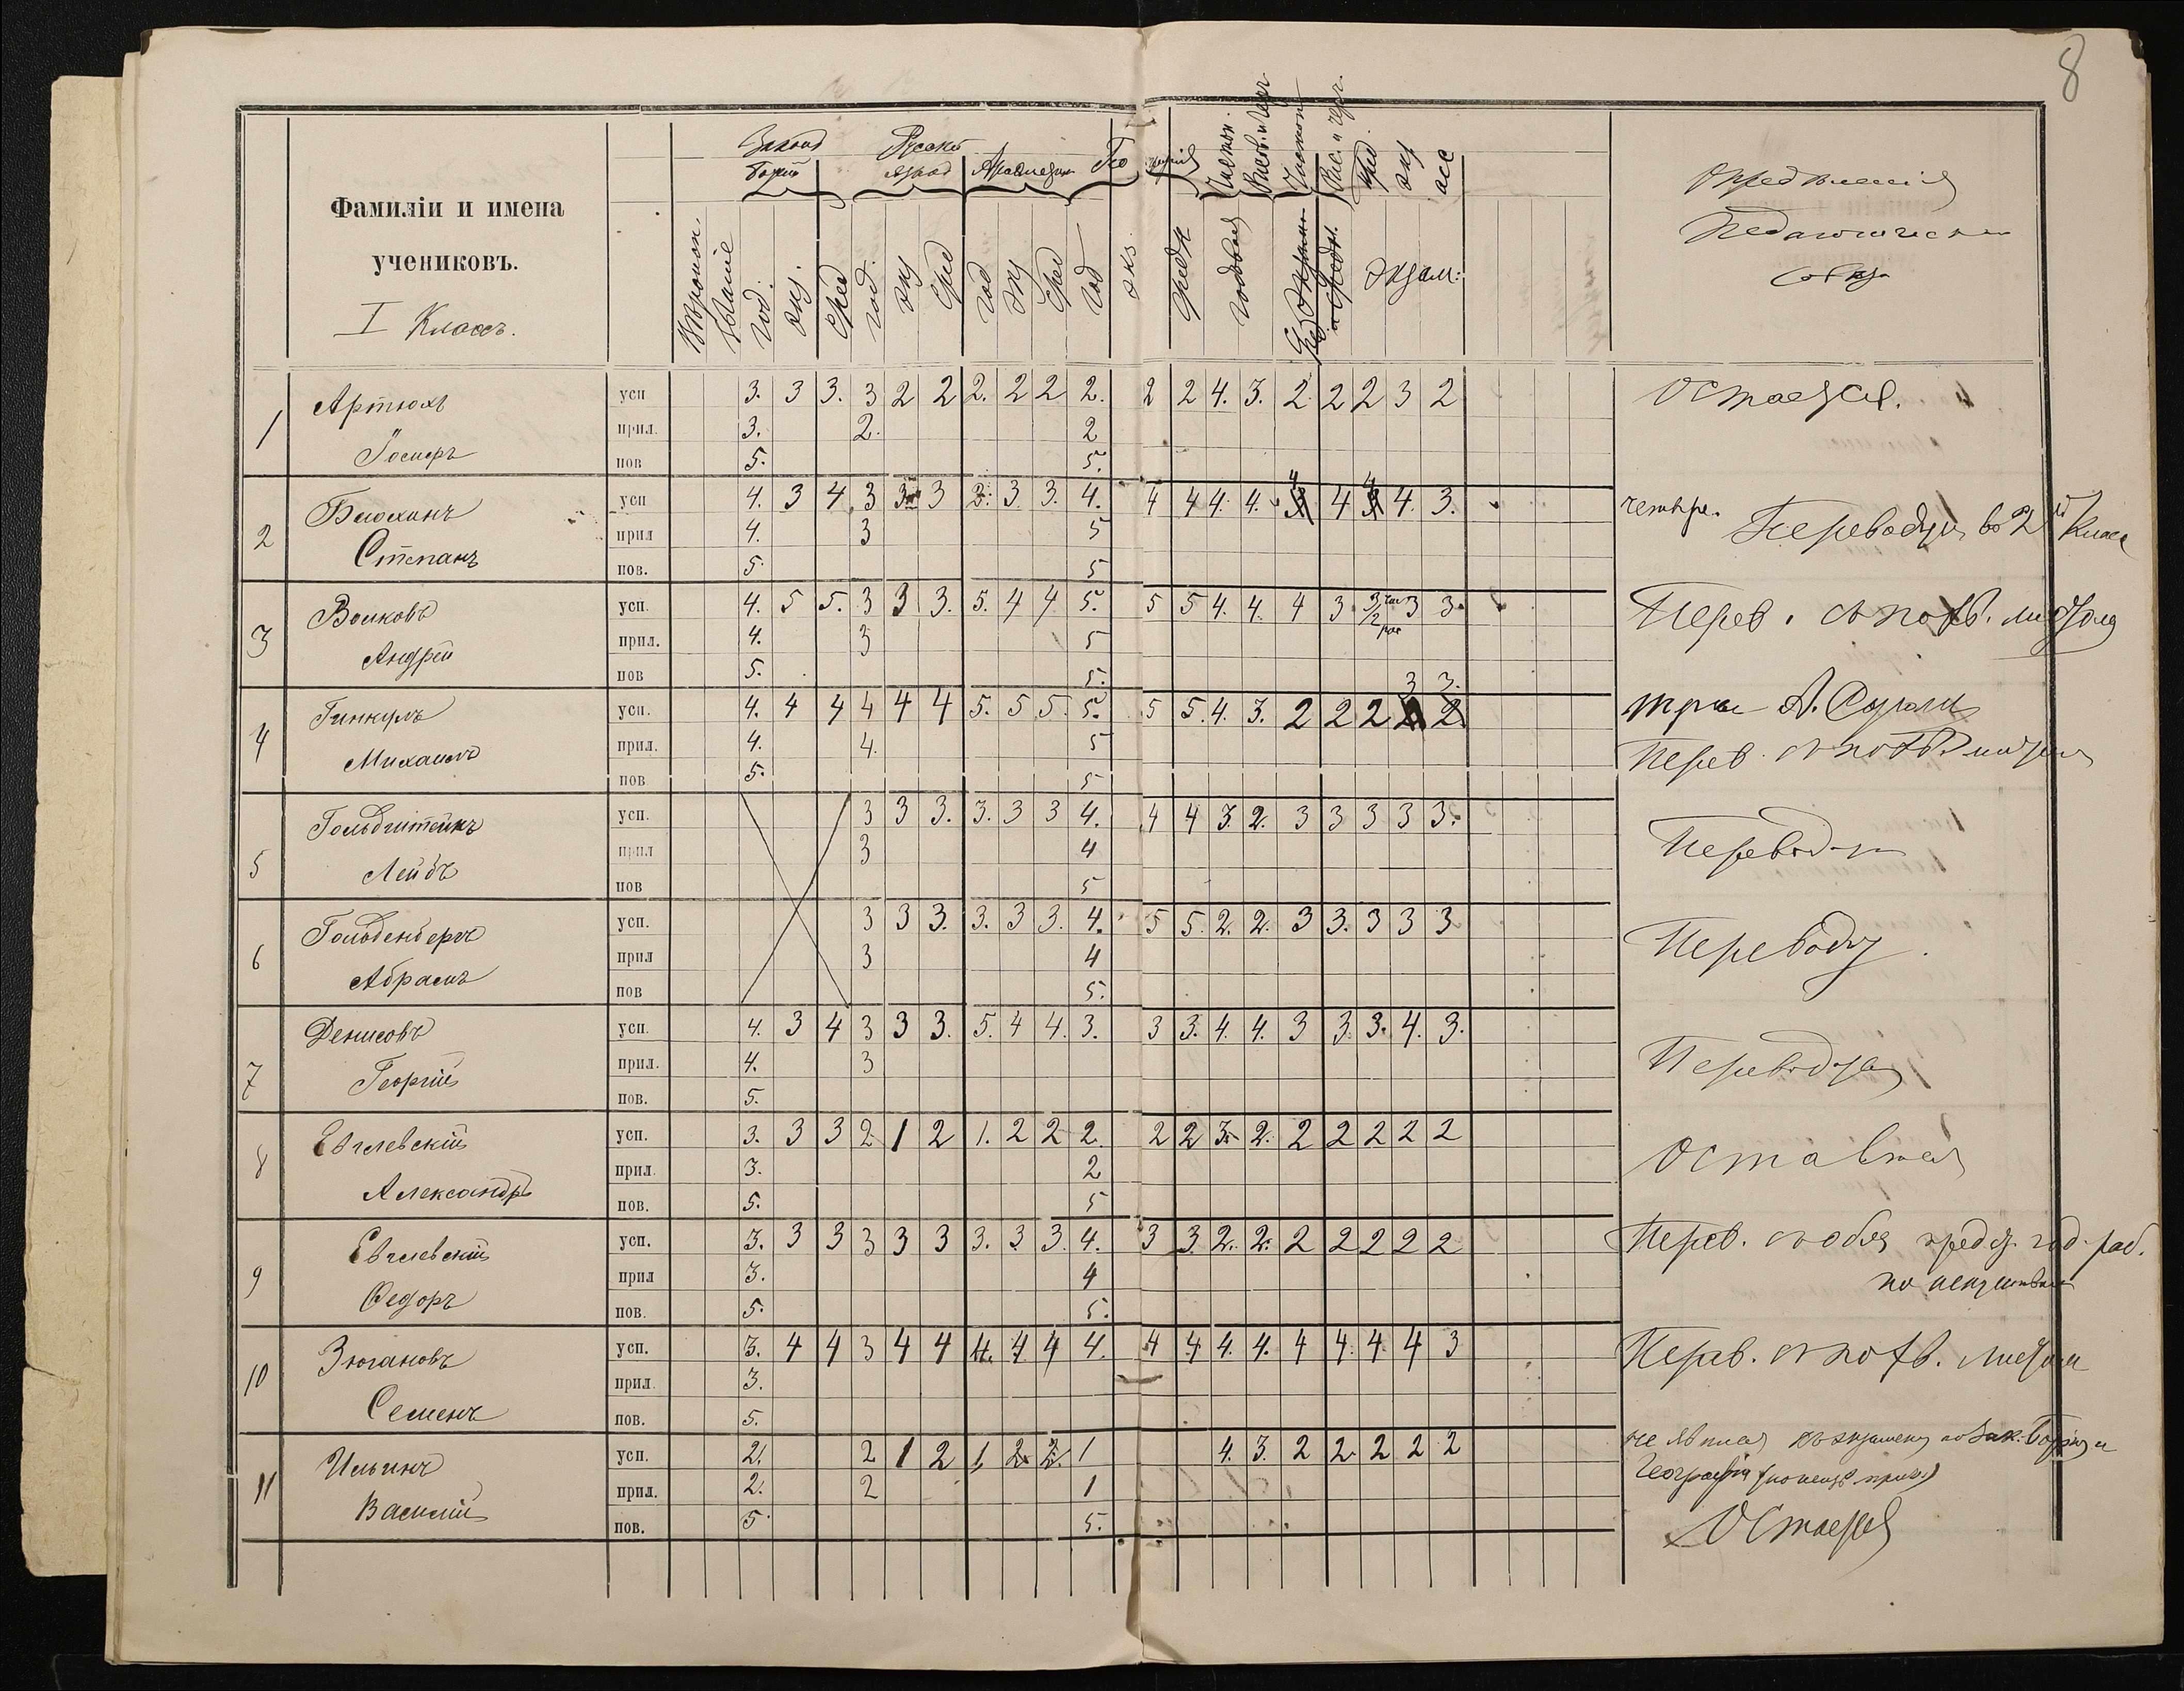 8
Фамиліи и имена
учениковъ.
I Классъ.
Вѣроиспов.
Званіе
Законъ
Божій
Русскій
языкъ
год.
экз.
сред
год.
экз
сред
год
экз
сред
год
экз.
годовыя
Экзам:
Педагогическаго
1
Артюхъ
Іосифъ
усп 3. 3 3. 3 2 2 2. 2 2 2. 2 2 4. 3. 2 2 2 3 2
Остается.
прил. 3. 2. 2
пов 5. 5.
2
Блохинъ
Степанъ
усп 4. 3 4 3 3 3 3. 3. 4. 4 4 4. 4. 4 4 4 4. 3.
четыре.
Переводится во 2й Класс
прил 4. 3 5
пов. 5. 5
3
Волковъ
Андрей
усп. 4. 5 5. 3 3 3. 5. 4 4 5. 5 5 4. 4. 4 3 3/2 3 3.
Перев. съ похв. листомъ
прил. 4. 3 5
пов 5. 5.
4
Михаилъ
3 3.
усп. 4. 4 4 4 4 4 5. 5 5. 5. 5 5. 4. 3. 2 2 2 2 2
три
Перев. съ похв. листом
прил. 4. 4. 5
пов 5. 5
5
Гольдштейнъ
Лейбъ
усп. 3 3 3. 3. 3 3 4. 4 4 3. 2. 3 3 3 3 3.
Переводится
прил 3 4
пов 5
6
Гольденбергъ
Абрамъ
усп. 3 3 3. 3. 3 3. 4. 5 5. 2. 2. 3 3. 3 3 3
Переводит
прил 3 4
пов 5.
7
Денисовъ
Георгій
усп. 4. 3 4 3 3 3. 5. 4 4. 3. 3 3. 4. 4. 3 3. 3. 4. 3.
Переводится
прил. 4. 3
пов. 5.
8
Евглевскій
Александръ
усп. 3. 3 3 2 1 2 1. 2 2 2. 2 2 3. 2. 2 2 2 2 2
прил. 3. 2
пов. 5. 5
9
Евглевскій
Ѳедоръ
усп. 3. 3 3 3 3 3 3. 3 3. 4. 3 3. 2. 2. 2 2 2 2 2
Перев. съ обяз. предст. год. раб.
прил 3. 4
пов. 5. 5.
10
Зюгановъ
Семенъ
усп. 3. 4 4 3 4 4 4. 4. 4 4. 4 4 4. 4. 4 4. 4. 4 3
Перев. съ похв. листом
прил. 3.
пов. 5.
11
Ильинъ
Василій
усп. 2. 2 1 2 1. 2. 2. 1 4. 3. 2 2. 2 2 2
не явился къ экзамену по Зак. Божію и
Географіи
прил. 2. 2 1
пов. 5 5.
Остается